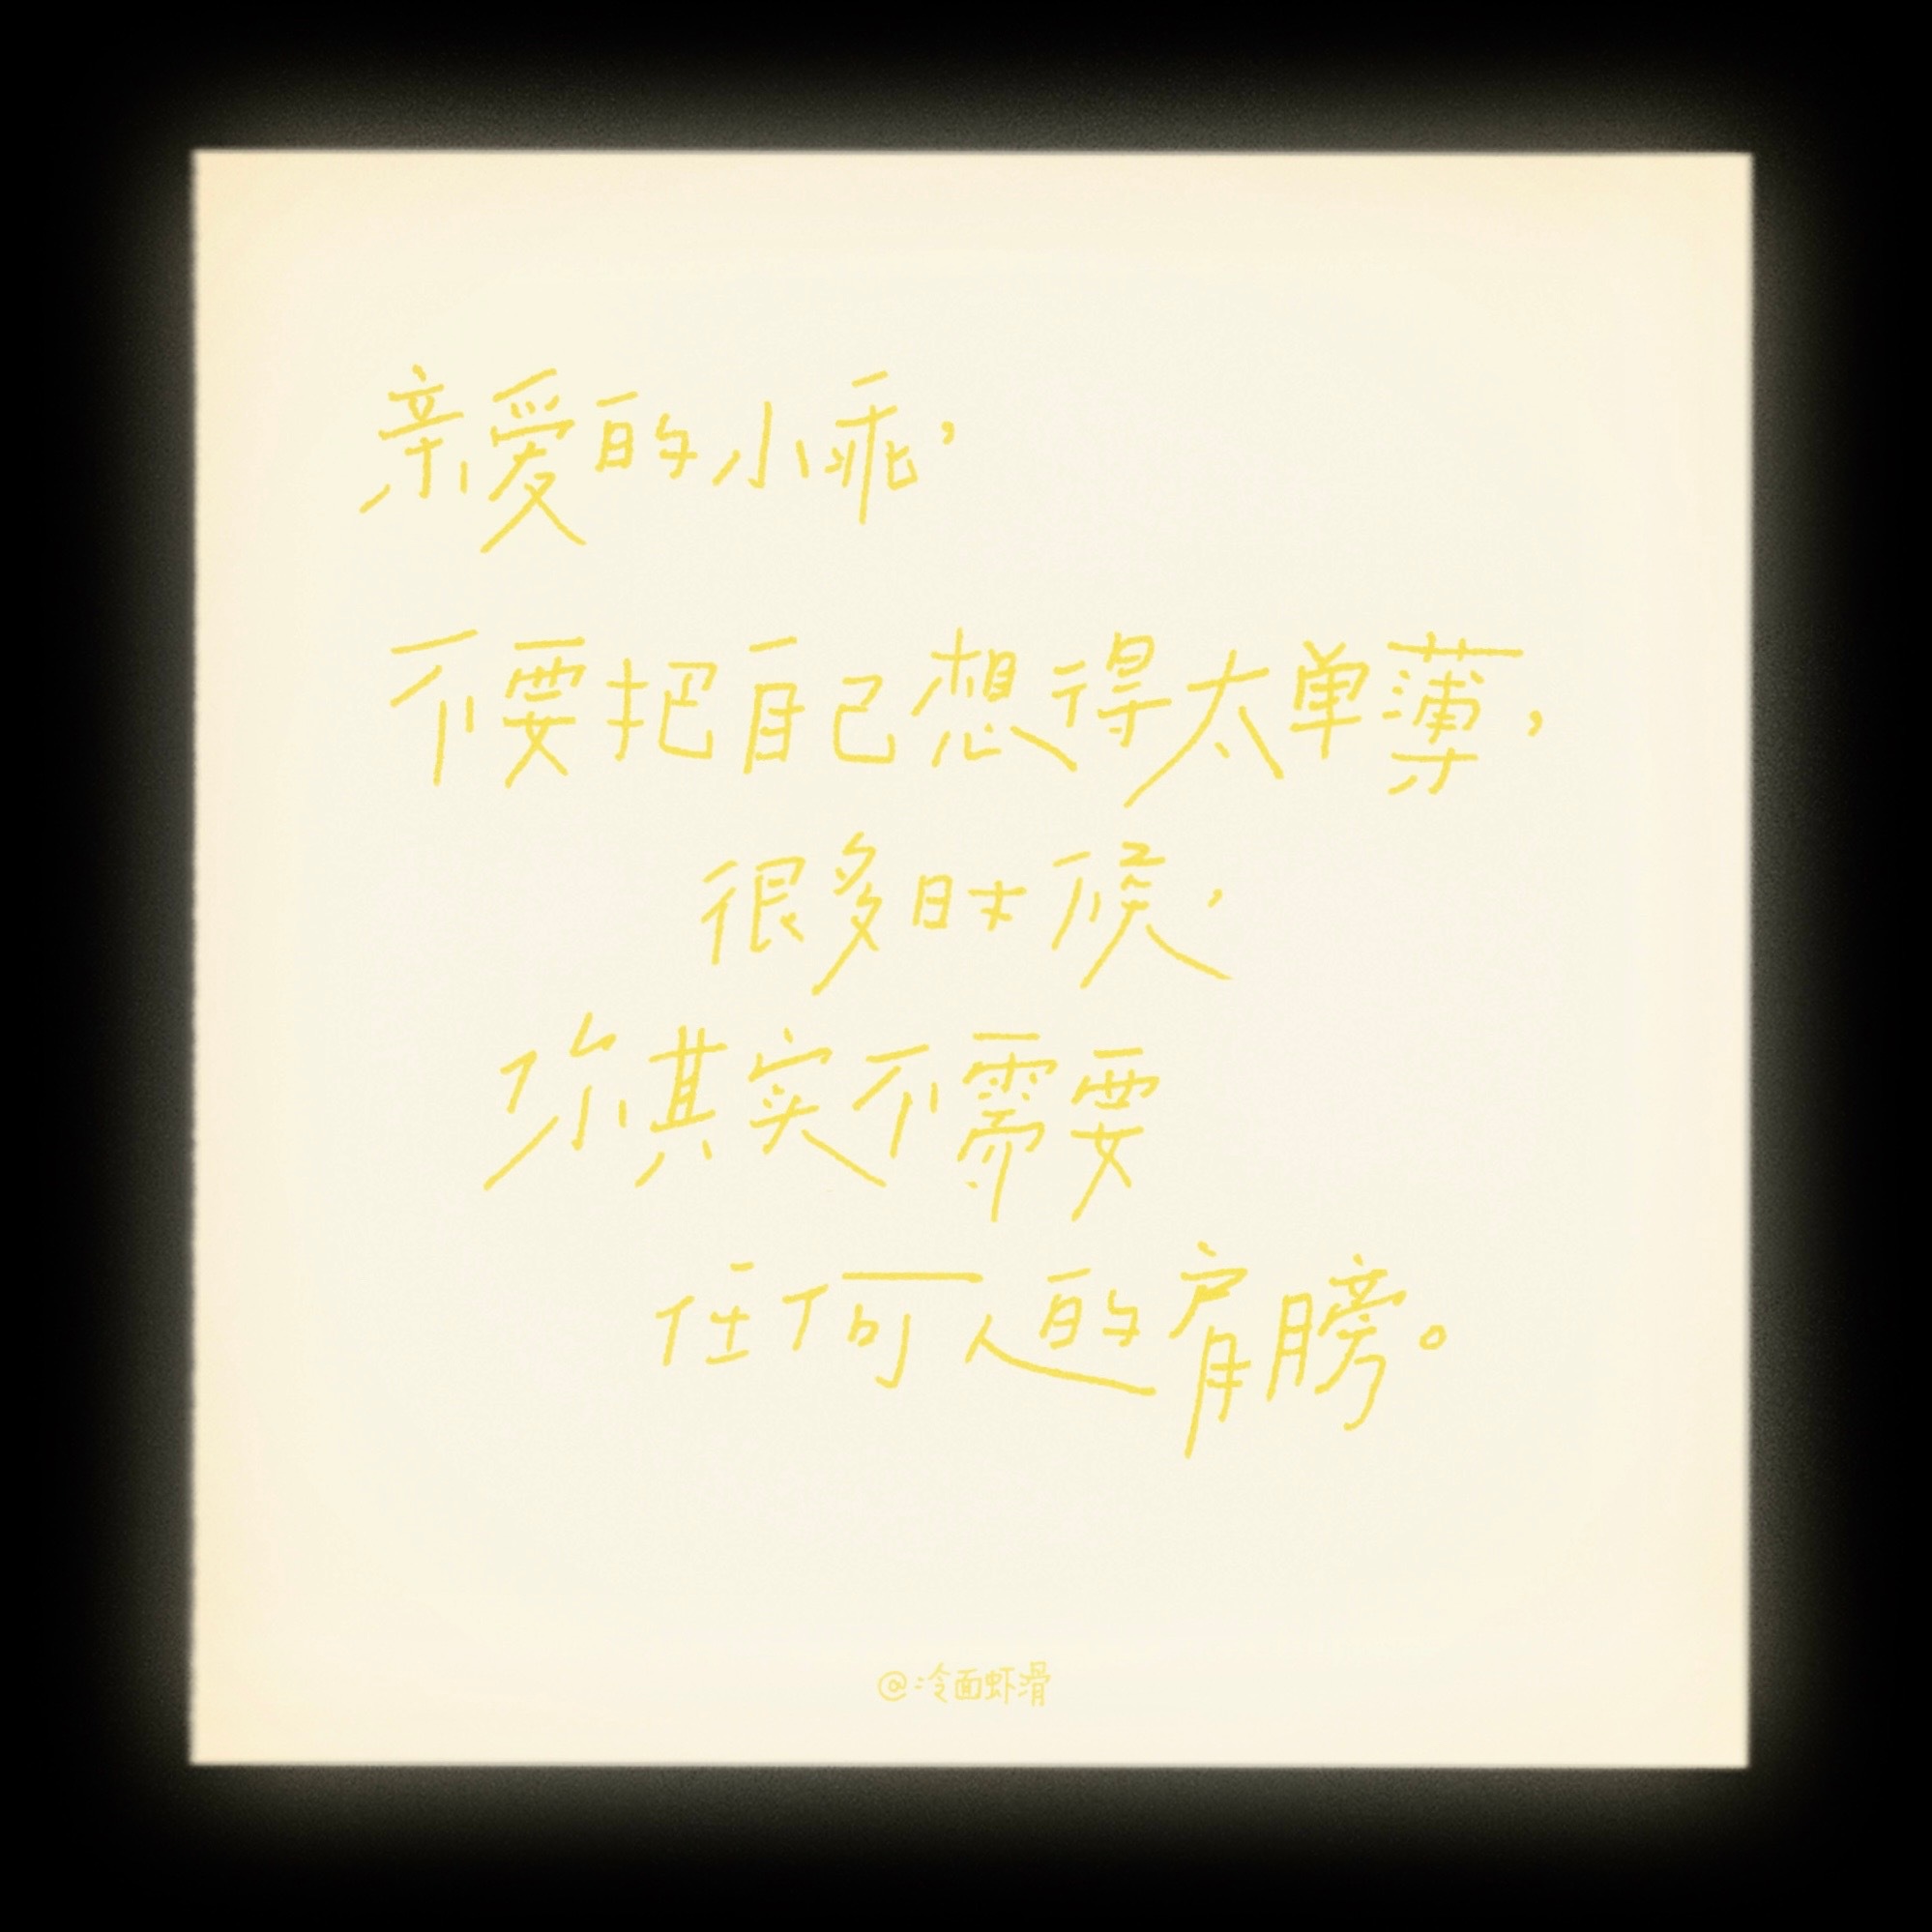 亲爱的小乖，
不要把自己想得太单薄，
很多时候，
你其实不需要
任何人的肩膀。
@冷面虾滑